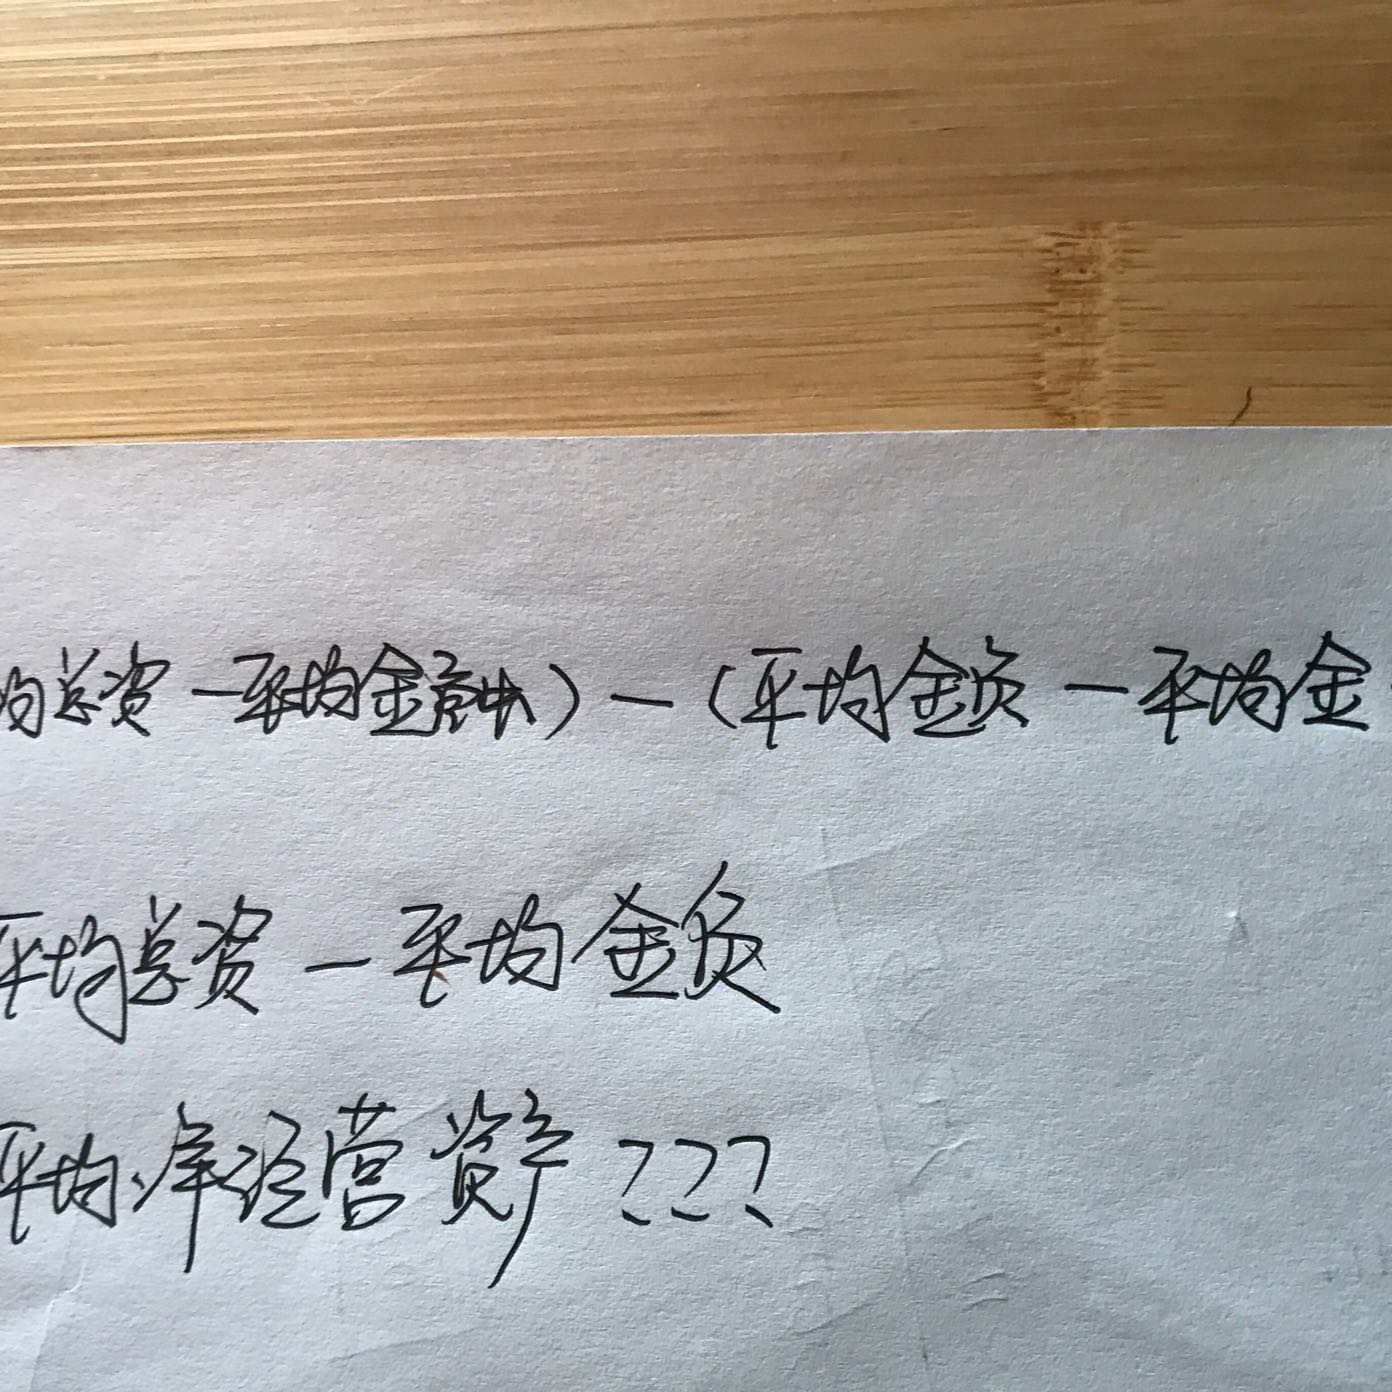 均总资 — 平均金资) — (平均金负 — 平均金
平均总资 — 平均金负
平均净经营资产???